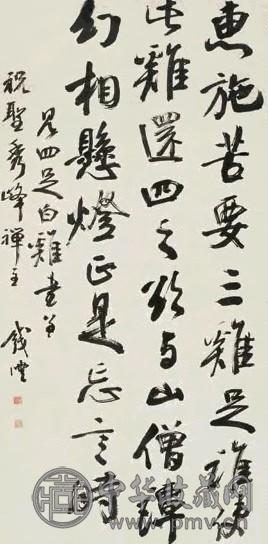 惠施苦要三雞足誰使
此雞還四之欲与山僧譚
幻相懸燈正是忘言時
見四足白雞書
祝聖秀峰禪主
錢灃
中华收藏网
www.pmv.cn